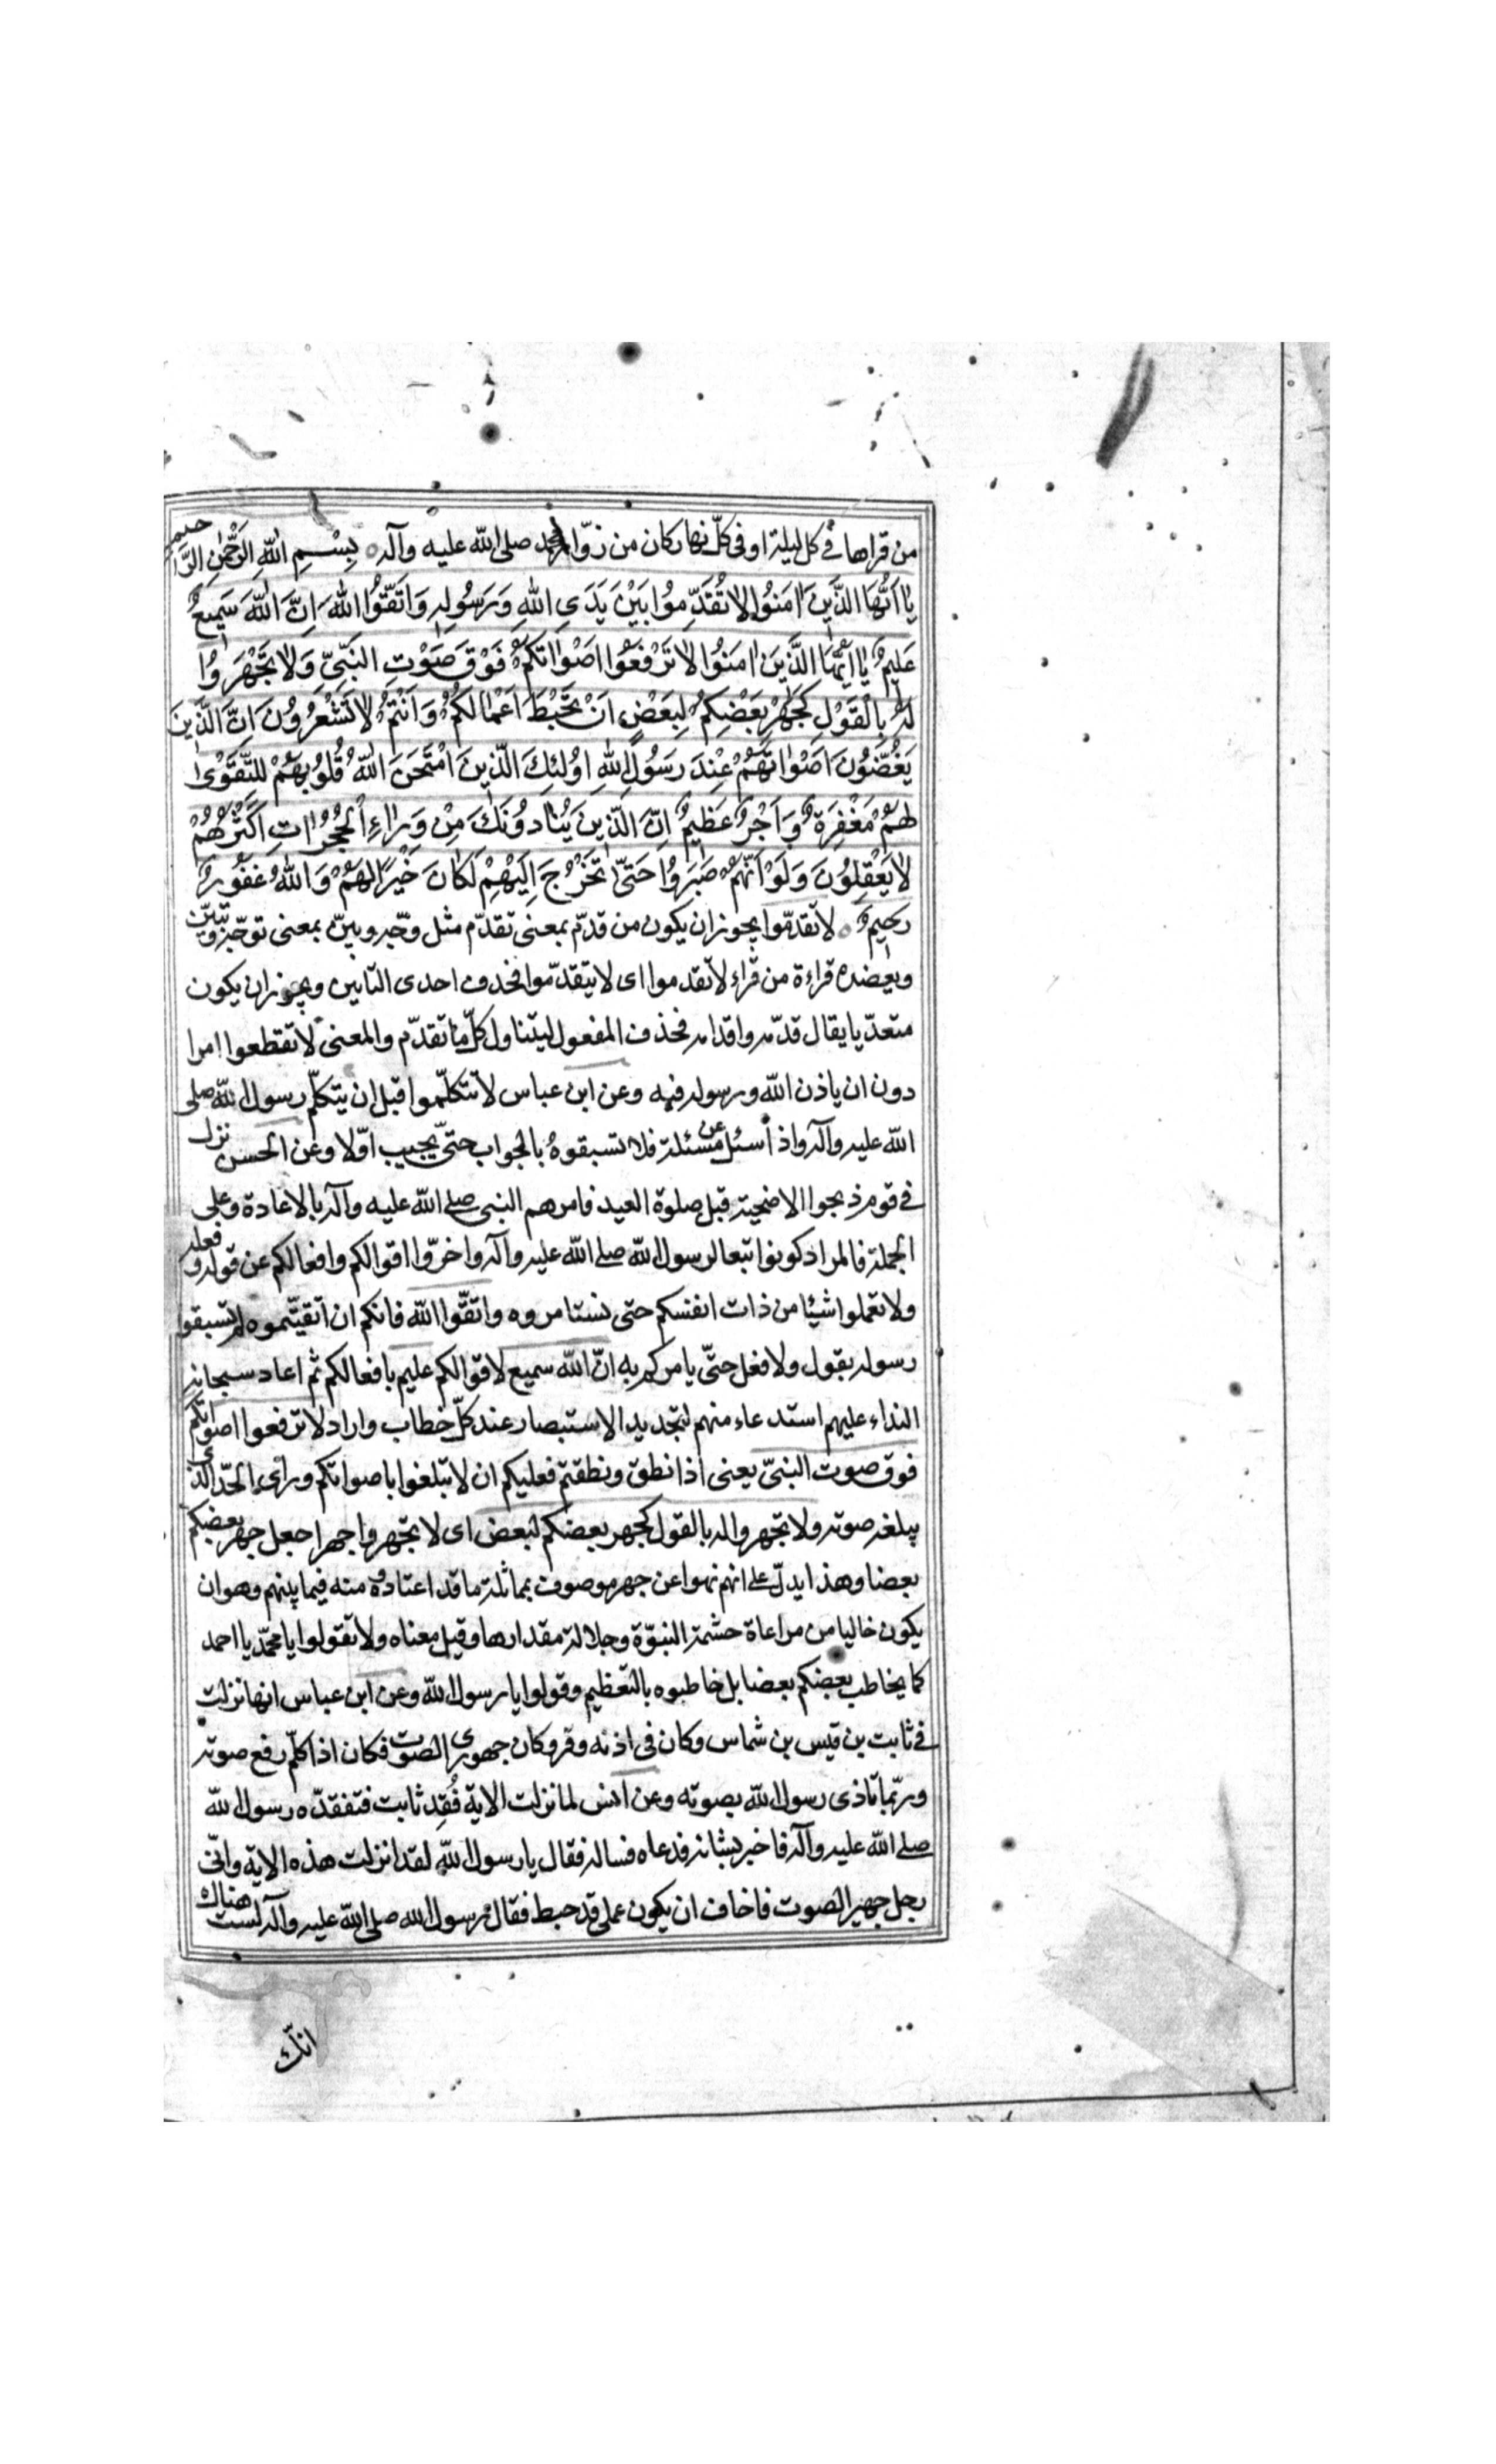 من قراها في كل ليلة او في كلّ نهار كان من زوّار محمد صلى الله عليه وآله بِسْمِ اللهِ الرَّحْمٰنِ الرَّحيم
يٰا اَيُّهَا الَّذينَ اٰمَنُوا لٰا تُقَدِّمُوا بَيْنَ يَدَيِ اللهِ وَرَسُولِهِ وَاتَّقُوا اللهَ اِنَّ اللهَ سَميعٌ
عَليمٌ يٰا اَيُّهَا الَّذينَ اٰمَنُوا لٰا تَرْفَعُوا اَصْوٰاتَكُمْ فَوْقَ صَوْتِ النَّبِيِّ وَلٰا تَجْهَرُوا
لَهُ بِالْقَوْلِ كَجَهْرِ بَعْضِكُمْ لِبَعْضٍ اَنْ تَحْبَطَ اَعْمٰالُكُمْ وَاَنْتُمْ لٰا تَشْعُرُونَ اِنَّ الَّذينَ
يَغُضُّونَ اَصْوٰاتَهُمْ عِنْدَ رَسُولِ اللهِ اُولٰئِكَ الَّذينَ امْتَحَنَ اللهُ قُلُوبَهُمْ لِلتَّقْوٰى
لَهُمْ مَغْفِرَةٌ وَاَجْرٌ عَظيمٌ اِنَّ الَّذينَ يُنٰادُونَكَ مِنْ وَرٰاءِ الْحُجُرٰاتِ اَكْثَرُهُمْ
لٰا يَعْقِلُونَ وَلَوْ اَنَّهُمْ صَبَرُوا حَتّٰى تَخْرُجَ اِلَيْهِمْ لَكٰانَ خَيْرًا لَهُمْ وَاللهُ غَفُورٌ
رَحيمٌ لا تقدّموا يجوز ان يكون من قدّم بمعنى تقدّم مثل وجّه وبيّن بمعنى توجّه وتبيّن
ويعضده قراءة من قراء لا تقدموا اى لا تتقدّموا فحذف احدى التايين ويجوز ان يكون
متعدّيا يقال قدّمه واقدامه فحذف المفعول ليتناول كلّ ما تقدّم والمعنى لا تقطعوا امرا
دون ان ياذن الله ورسوله فيه وعن ابن عباس لا تتكلّموا قبل ان يتكلّم رسول الله صلى
الله عليه وآله واذا سئل عن مسئلة فلا تسبقوه بالجواب حتّى يجيب اوّلا وعن الحسن نزل
في قوم ذبحوا الاضحية قبل صلوة العيد فامرهم النبى صلى الله عليه وآله بالاعادة وعلى
الجملة فالمراد كونوا تبعا لرسول الله صلى الله عليه وآله واخرّوا اقوالكم وافعالكم عن قوله وفعله
ولا تعملوا شيئا من ذات انفسكم حتى تستامروه واتقّوا الله فانكم ان اتقيتموه لم تسبقوا
رسوله بقول ولا فعل حتّى يامركم به انّ الله سميع لاقوالكم عليم بافعالكم ثم اعاد سبحانه
النداء عليهم استدعاء منهم لتجديد الاستبصار عند كلّ خطاب واراد لا ترفعوا اصواتكم
فوق صوت النبىّ يعنى اذا نطق ونطقتم فعليكم ان لا تبلغوا باصواتكم وراء الحدّ الذى
يبلغه صوته ولا تجهروا له بالقول كجهر بعضكم لبعض اى لا تجهروا جهرا جعل جهر بعضكم
بعضا وهذا يدلّ على انهم نهوا عن جهر موصوف بمماثلة ما قد اعتادوه منه فيما بينهم وهو ان
يكون خاليا من مراعاة حشمة النبوّة وجلالة مقدارها وقيل معناه ولا تقولوا يا محمّد يا احمد
كما يخاطب بعضكم بعضا بل خاطبوه بالتعظيم وقولوا يا رسول الله وعن ابن عباس انها نزلت
في ثابت بن قيس بن شماس وكان في اذنه وقر وكان جهورى الصوت فكان اذا كلّم رفع صوته
وربّما تاذى رسول الله بصوته وعن انس لما نزلت الاية فُقِد ثابت فتفقدّه رسول الله
صلى الله عليه وآله فاخبر بشانه فدعاه فساله فقال يا رسول اللهِ لقد انزلت هذه الاية وانّى
رجل جهير الصوت فاخاف ان يكون عملى قد حبط فقال رسول الله صلى الله عليه وآله لست هناك
انّك